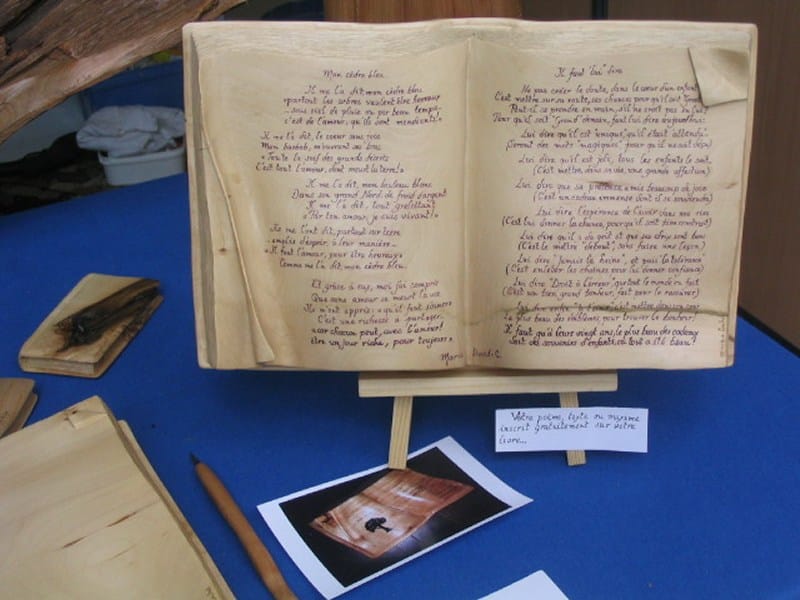 Mon cèdre bleu
Il me l'a dit, mon cèdre bleu
partout les arbres veulent être heureux
sous ciel de pluie ou par beau temps
c'est de l'amour, qu'ils sont mendiants!
Il me l'a dit, le coeur sans
Mon baobab, m'ouvrant ses bras
"Toute la soif des grands déserts
C'est tout l'amour, dont meurt la terre!"
Il me l'a dit, mon bouleau blanc
Dans son grand Nord, de froid d'argent
Il me l'a dit, tout grelottant
"Par ton amour, je suis vivant!"
Ils me l'ont dit, partout sur terre
emplis d'espoir, à leur manière
"Il faut l'amour, pour être heureux"
Comme me l'a dit, mon cèdre bleu.
Et grâce à eux, moi j'ai compris
Que sans amour se meurt la vie
Ils m'ont appris: "qu'il faut
C'est une richesse à partager
car chacun peut, avec l'Aimer!
être un jour riche, pour toujours"
Il faut "Lui" dire
Ne pas créer le doute, dans le coeur d'un enfant
C'est mettre sur sa route, ses chances pour qu'il soit "grand"
Peut-il se prendre en main, s'il ne croit pas
Pour qu'il soit "Grand" demain, faut lui dire aujourd'hui:
Lui dire qu'il est "unique", qu'il était "attendu"
(Seront des mots "magiques", pour qu'il ne soit déçu)
Lui dire qu'il est joli, tous les enfants le sont
(C'est mettre, dans sa vie, une grande affection)
Lui dire que sa présence a mis beaucoup de joie
(C'est un cadeau immense dont il se souviendra)
Lui dire l'espérance de l'avoir dans nos vies
(C'est lui donner la chance, pour qu'il soit
Lui dire qu'il a du goût et que ses choix sont bons
(C'est le mettre "debout", sans faire une leçon)
Lui dire "Jamais la haine", et puis "la tolérance"
(C'est enlever les chaînes pour lui donner confiance)
Lui dire "Droit à l'erreur", que tout le monde en fait
(C'est un bien grand bonheur, fait pour le rassurer)
Lui dire
Le plus beau des diplômes pour trouver le bonheur)
Il faut qu'à leurs vingt ans, le plus beau des cadeaux
Soit des souvenirs d'enfants, où tout a été beau!
Votre poème, texte ou maxime
inscrit gratuitement sur votre
livre...